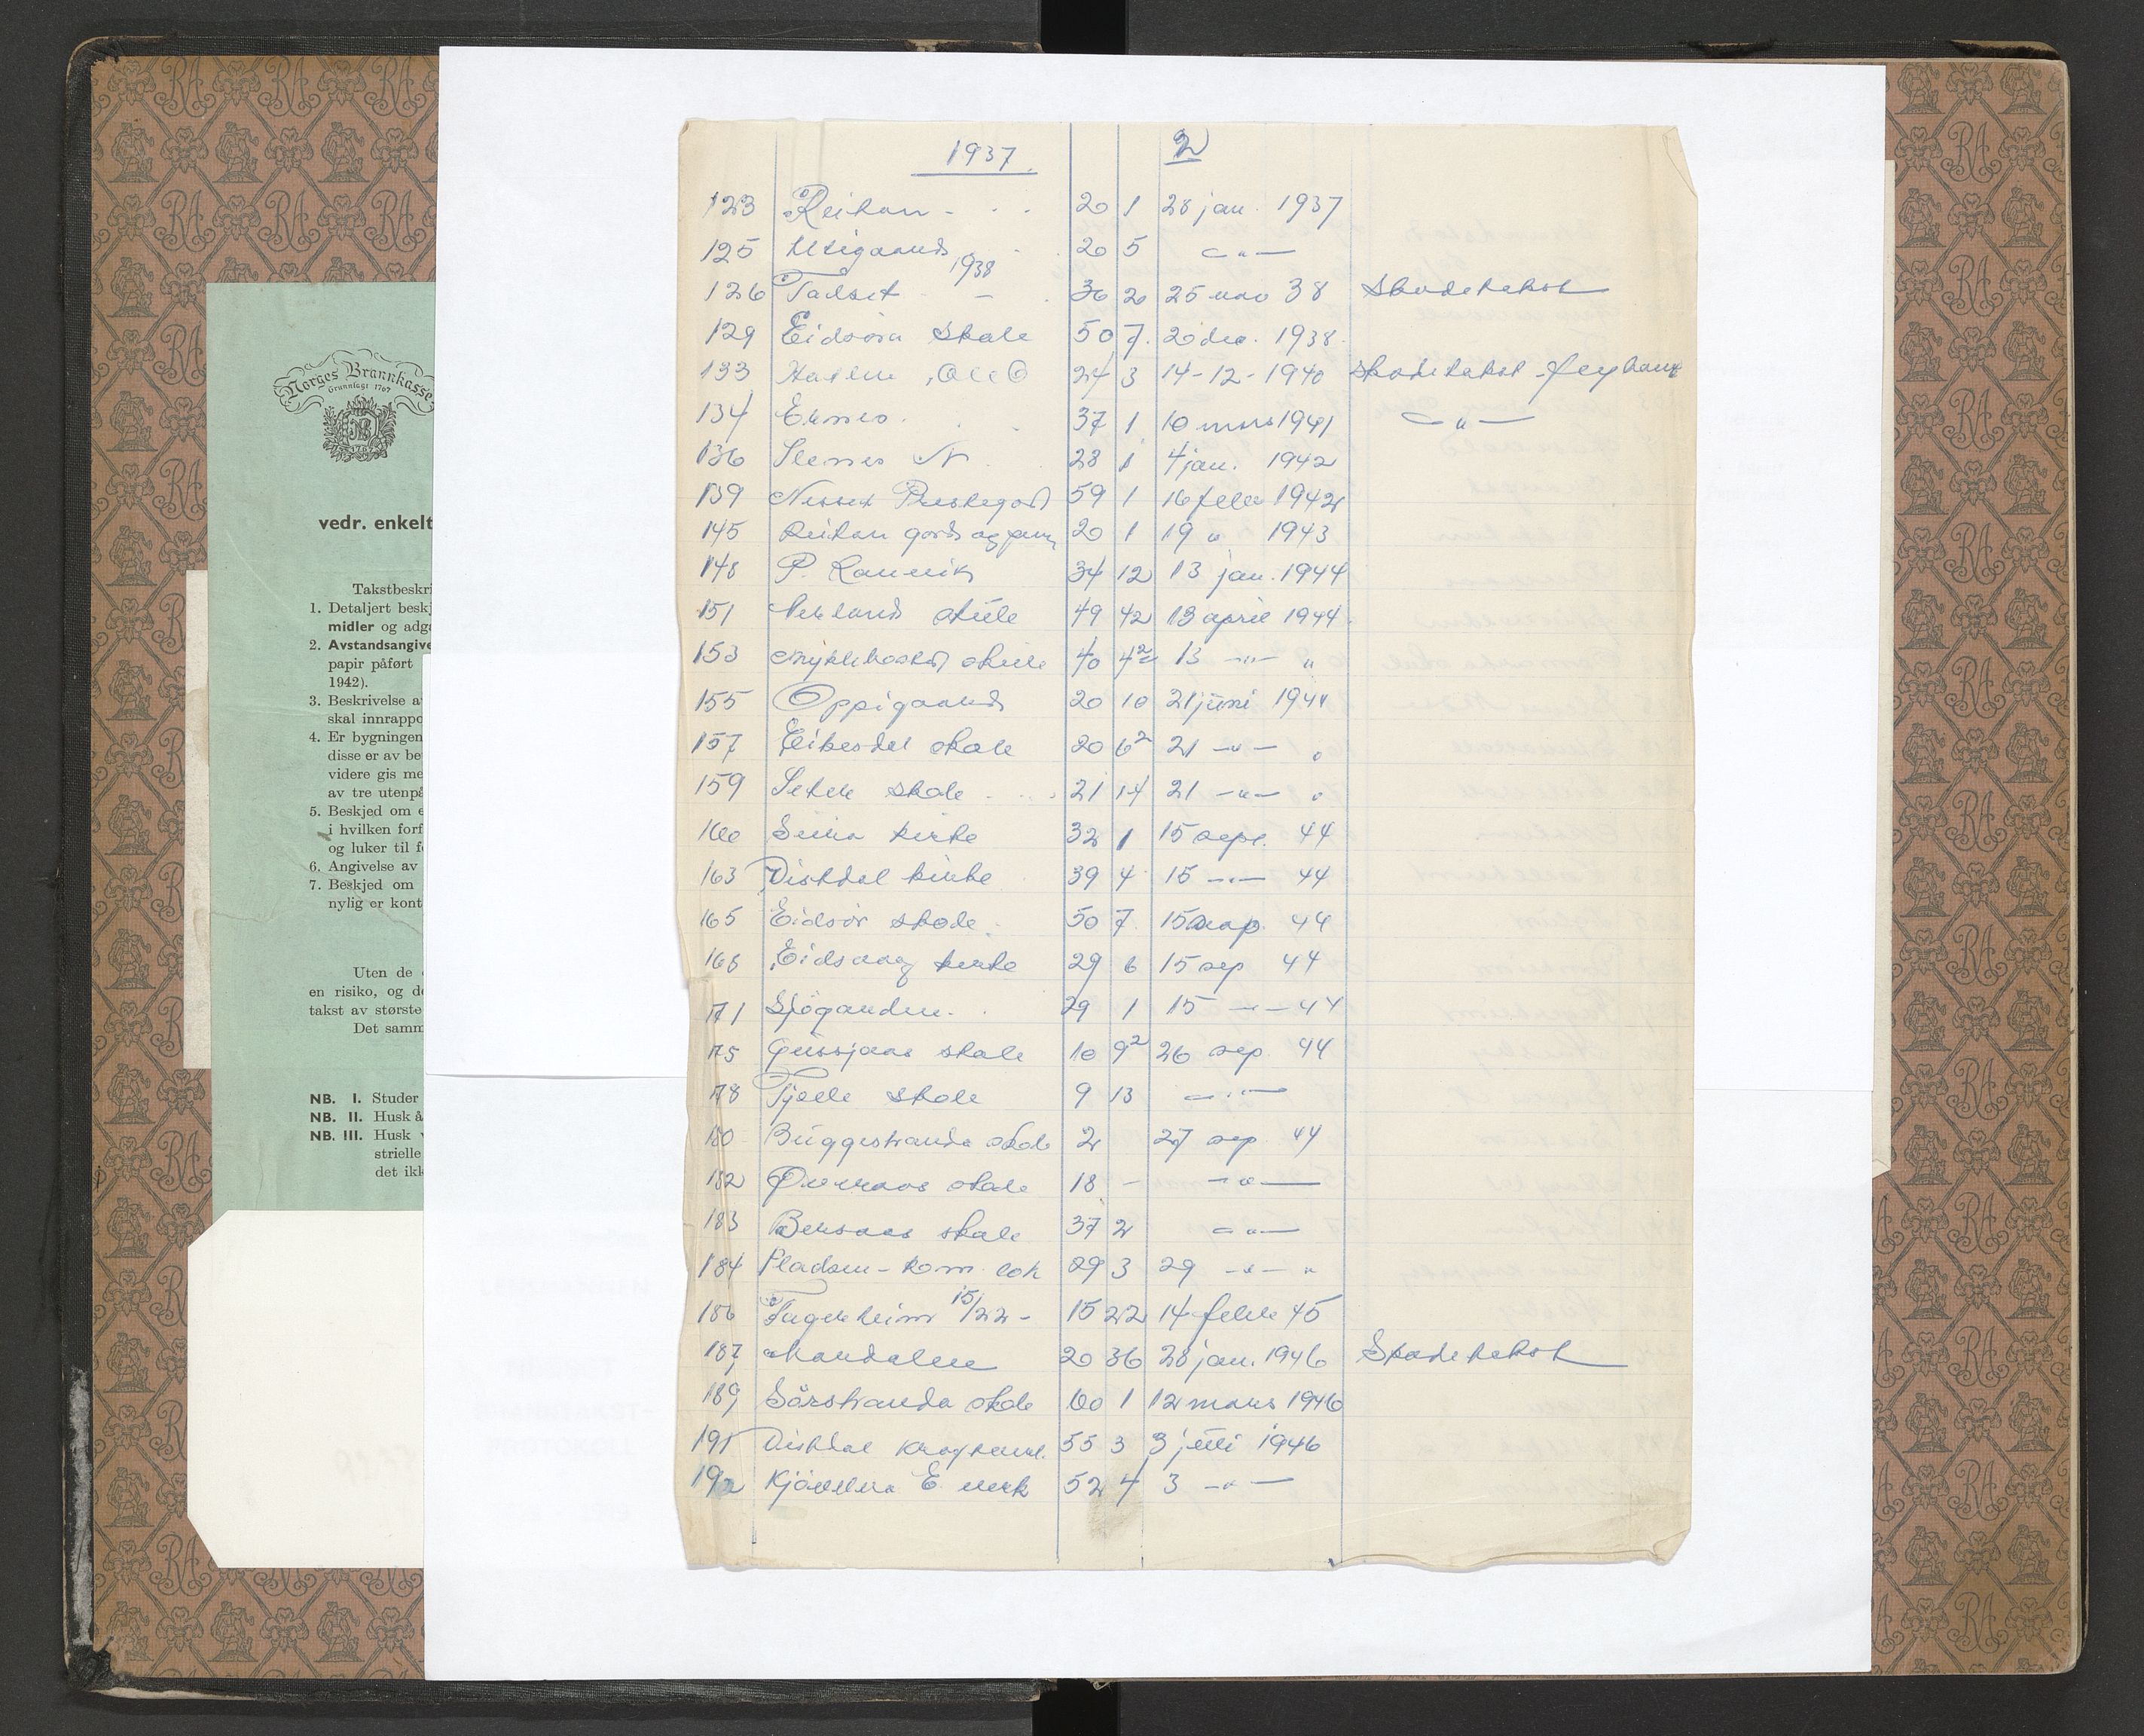 1937. 2
123 Reitan - 20 1 28 jan. 1937
125 Utigaard 20 5 — " —
1938
126 Tadset - 36 20 25 nov 38 Skadetakst
129 Eidsöra Skole 50 7. 20 des. 1938.
133 24 3 14-12-1940 Skadetakst
134 37 1 10 mars 1941 — " —
136 N 28 1 4 jan. 1942
139 Nesset Prestegård 59 1 16 febr 1942
145 Reitan gards og 20 1 19 " 1943
148 P. Ranvik 34 12 13 jan. 1944
151 skule 49 42 13 april 1944.
153 Myklebostad skule 40 4² 13 — " — "
155 Oppigaard 20 10 21 juni 1944
157 Eikesdal skole 20 6² 21 — " — "
159 Sete skole 21 14 21 — " — "
160 Sira kirke 32 1 15 sept. 44
163 Vistdal kirke 39 4 15 — " — 44
165 Eidsör skole. 50 7 15 sep. 44
168 Eidsvaag kirke 29 6 15 sep 44
171 Sjöganden. 29 1 15 — " — 44
175 Gussjaas skole 10 9² 26 sep. 44
178 Tjelle skole 9 13 — " —
180 Buggestranda skole 2 27 sep 44
182 Överaas skole 18 - — " —
183 Bersaas skole 37 2 — " —
184 Pladsen - kom. lok 29 3 29 — " — "
186 Fagerheim 15/22 - 15 22 14 febr 45
187 20 36 28 jan. 1946 Skadetakst
189 Sörstranda skole 60 1 12 mars 1946
191 Vistdal 55 3 3 juli 1946
192 E. verk 52 4 3 — " —
Norges Brannkasse
Grunnlagt 1767
NB
1767
vedr. enkelt
Takstbeskri
1. Detaljert beskj
midler og adga
2. Avstandsangive
papir påført
1942).
3. Beskrivelse a
skal innrappo
4. Er bygningen
disse er av be
videre gis me
av tre utenpå
5. Beskjed om e
i hvilken forf
og luker til f
6. Angivelse av
7. Beskjed om
nylig er kont
Uten de
en risiko, og de
takst av største
Det samm
NB. I. Studer
NB. II. Husk å
NB. III. Husk v
strielle
det ikk